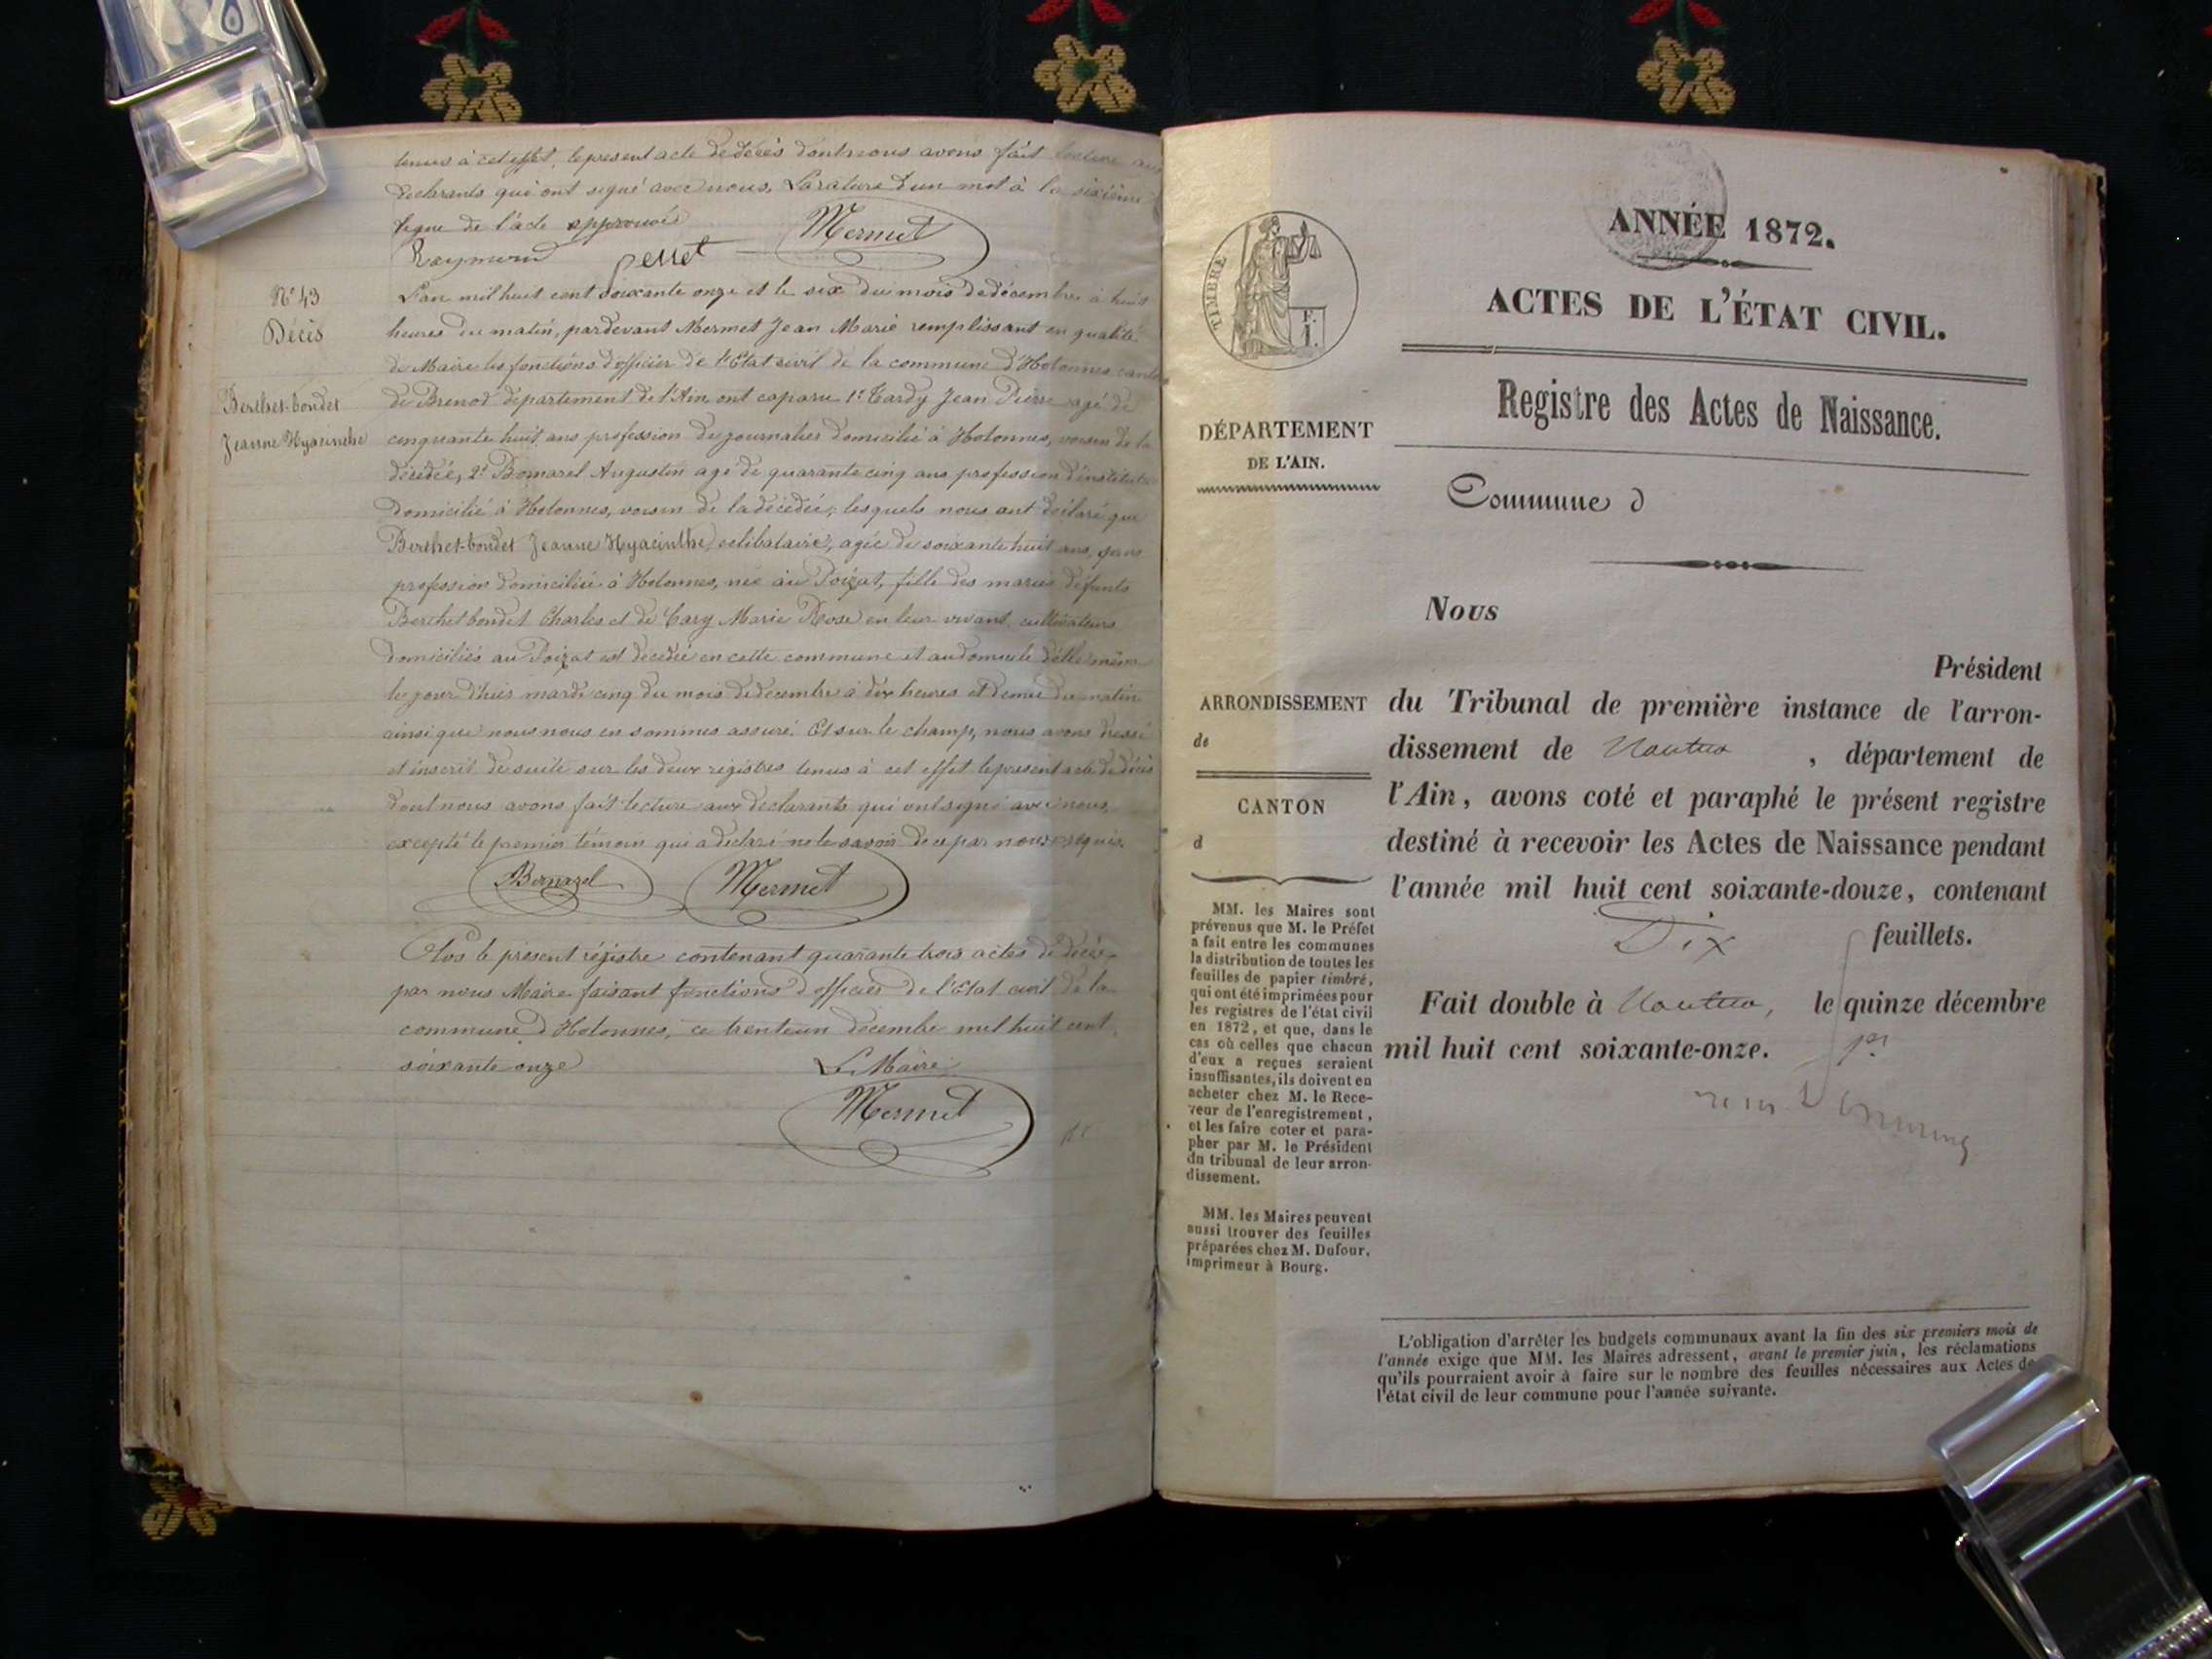 tenus à cet effet, le present acte de décès dont nous avons fait lecture aux
declarants qui ont signé avec nous. La rature d'un mot à la sixième
ligne de l'acte approuvée
Raymond perret Mermet
N° 43
Décès
Berthet-bondet
Jeanne Hyacinthe
L'an mil huit cent soixante onze et le six du mois de décembre à huit
heures du matin, pardevant Mermet Jean Marie remplissant en qualité
de Maire les fonctions d'officier de l'Etat civil de la commune d'Hotonnes canton
de Brenod département de l'Ain ont comparu 1° Tardy Jean Pierre agé de
cinquante huit ans profession de journalier domicilié à Hotonnes, voisin de la
décédée, 2° Augustin agé de quarante cinq ans profession d'instituteur
domicilié à Hotonnes, voisin de la décédée; lesquels nous ont déclaré que
Berthet-bondet Jeanne Hyacinthe, celibataire, agée de soixante huit ans, sans
profession domiciliée à Hotonnes, née au Poizat, fille des mariés défunts
Berthet bondet Charles et de Marie Rose en leur vivant cultivateurs
domiciliés au Poizat est décédée en cette commune et au domicile d'elle même
le jour d'hier mardi cinq du mois de décembre à dix heures et demie du matin
ainsi que nous nous en sommes assuré. Et sur le champ, nous avons dressé
et inscrit de suite sur les deux régistres tenus à cet effet le present acte de décès
dont nous avons fait lecture aux declarants qui ont signé avec nous,
excepté le premier témoin qui a declaré ne le savoir de ce par nous requis.
Mermet
Clos le présent régistre contenant quarante trois actes de décès
par nous Maire faisant fonctions d'officier de l'Etat civil de la
commune d'Hotonnes, ce trente un décembre mil huit cent
soixante onze
Le Maire
Mermet
TIMBRE
F.
1.
ANNÉE 1872.
ACTES DE L'ÉTAT CIVIL.
Registre des Actes de Naissance.
DÉPARTEMENT
DE L'AIN.
ARRONDISSEMENT
de
CANTON
d
MM. les Maires sont
prévenus que M. le Préfet
a fait entre les communes
la distribution de toutes les
feuilles de papier timbré,
qui ont été imprimées pour
les registres de l'état civil
en 1872, et que, dans le
cas où celles que chacun
d'eux a reçues seraient
insuffisantes, ils doivent en
acheter chez M. le Rece-
veur de l'enregistrement,
et les faire coter et para-
pher par M. le Président
du tribunal de leur arron-
dissement.
MM. les Maires peuvent
aussi trouver des feuilles
préparées chez M. Dufour,
imprimeur à Bourg.
Commune d
Nous
Président
du Tribunal de première instance de l'arron-
dissement de Nantua , département de
l'Ain, avons coté et paraphé le présent registre
destiné à recevoir les Actes de Naissance pendant
l'année mil huit cent soixante-douze, contenant
Dix feuillets.
Fait double à Nantua, le quinze décembre
mil huit cent soixante-onze.
L'obligation d'arrêter les budgets communaux avant la fin des six premiers mois de
l'année exige que MM. les Maires adressent, avant le premier juin, les réclamations
qu'ils pourraient avoir à faire sur le nombre des feuilles nécessaires aux Actes de
l'état civil de leur commune pour l'année suivante.